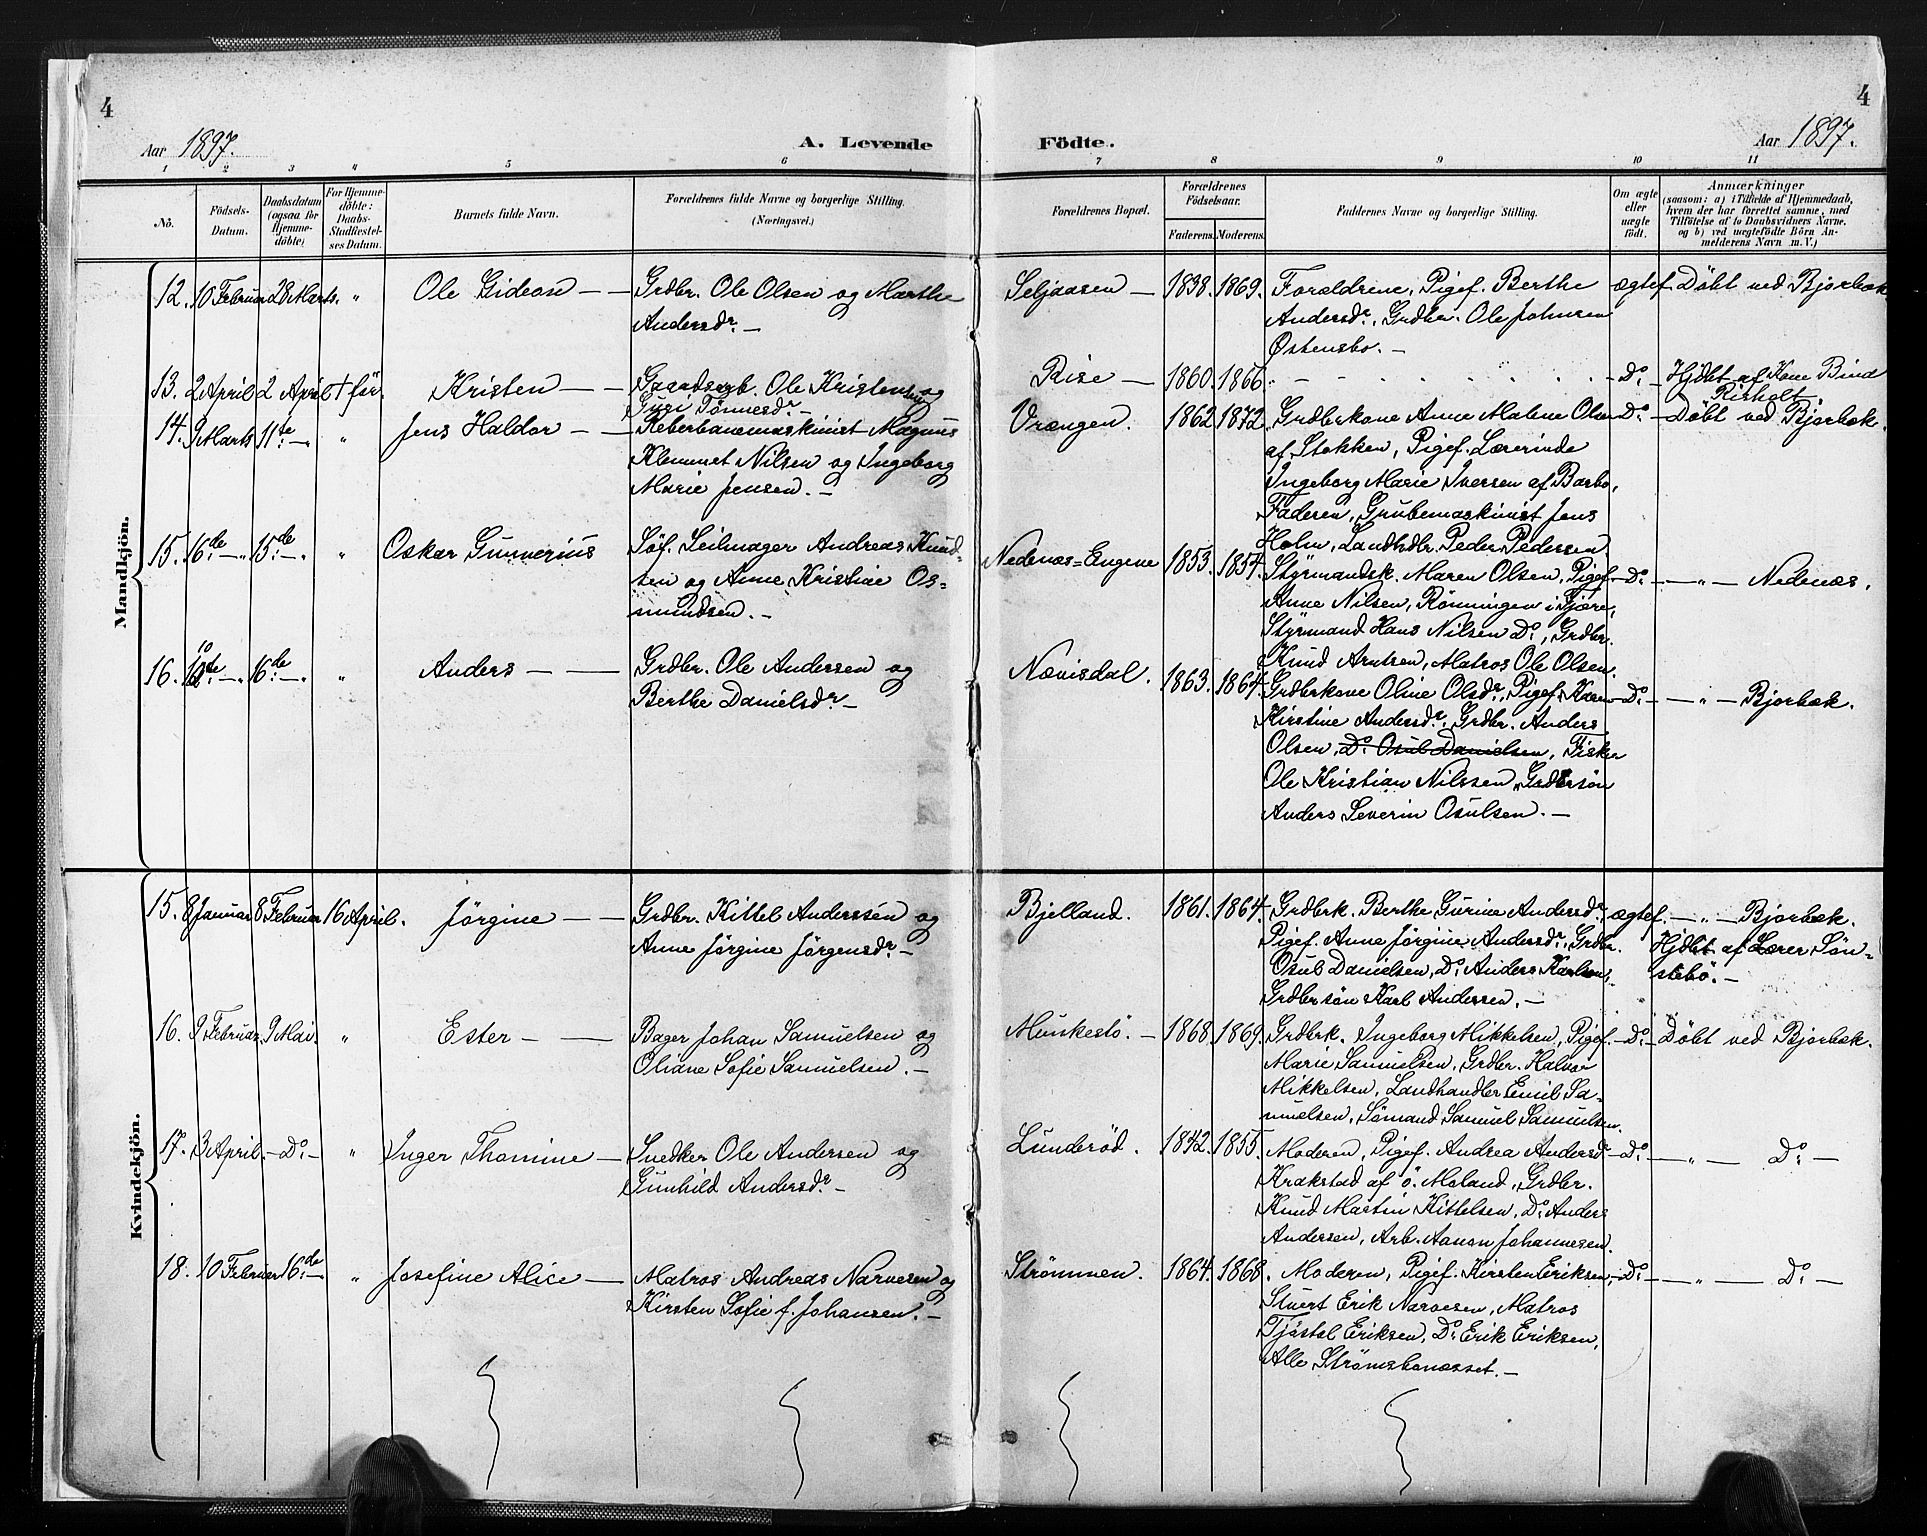 4
4
Aar 1897.
A. Levende
Födte.
Aar 1897.
1 2 3 4 5 6 7 8 9 10 11
No.
Födsels-Datum.
Daabsdatum (ogsaa for Hjemmedöbte)
For Hjemmedöbte: Daabs-Stadfæstelses Datum.
Barnets fulde Navn.
Forældrenes fulde Navne og borgerlige Stilling.
(Næringsvei.)
Forældrenes Bopæl.
Forældrenes Födselsaar.
Faderens. Moderens.
Faddernes Navne og borgerlige Stilling.
Om ægte eller uægte födt.
Anmærkninger
(saasom: a) i Tilfælde af Hjemmedaab, hvem der har forrettet samme, med Tilföielse af to Daabsvidners Navne. og b) ved uægtefödte Börn Anmelderens Navn m. V.)
Mandkjön.
12. 10 Februar 28 Marts. " Ole Gideon — Grdbr. Ole Olsen og Marthe
Andersdr. —
Seljaasen — 1838. 1869. Forældrene, Pigef. Berthe
Andersdr., Grdbr. Ole Johnsen
Østensbo. —
ægtef. Döbt ved Bjorbæk
13. 2 April 2 April + för. Kristen — Ole Kristensen og
Guri Tönnesdr. —
Rise — 1860. 1866. Do. — Hjdbt af Kone
14. 9 Marts 11te " Jens Haldor — Reberbanemaskinist Magnus
Klemmet Nilsen og Ingeborg
Marie Jensen. —
Vrængen. 1862. 1872. Grdbrkone Anne Malene Olsen
af Stokken, Pigef. Lærerinde
Ingeborg Marie Iversen af Barbo,
Faderen, Grubemaskinist Jens
Holm, Landhdbr. Peder Pedersen
Do. — Döbt ved Bjorbæk.
15. 16de 15de " Oskar Gunnerius Söf. Seilmager Andreas Knud-
sen og Anne Kristine Os-
mundsen. —
Nedenæs=Engene 1853. 1854. Styrmandsk. Maren Olsen, Pigef.
Anne Nilsen, Rönningen i Fjære,
Styrmand Hans Nilsen Do., Grdbr.
Knud Arntsen, Matros Ole Olsen.
Do. — " — Nedenæs.
16. 16de " Anders — Grdbr. Ole Andersen og
Berthe Danielsdr. —
Nævisdal. 1863. 1864. Grdbrkone Oline Olsdr., Pigef. Karen
Kirstine Andersdr., Grdbr. Anders
Olsen, Do. Osul Danielsen, Fisker
Ole Kristian Nilssen, Grdbrsön
Anders Severin Osulsen. —
Do. — " — Bjorbæk.
Kvindekjön.
15. 8 Januar 8 Februar 16 April. Jörgine — Grdbr. Kittel Anderssen og
Anne Jörgine Jörgensdr. —
Bjelland. 1861. 1864. Grdbrk. Berthe Gurine Andersdr.
Pigef. Anne Jörgine Andersdr., Grdbr.
Osul Danielsen, Do. Anders Karlsen,
Grdbrsön Karl Andersen. —
ægtef. — " — Bjorbæk.
Hjdbt af Lærer Sön-
stebö. —
16. 9 Februar. 9 Mai. " Ester — Bager Johan Samuelsen og
Oliane Sofie Samuelsen. —
Munkestö. — 1868. 1869. Grdbrk. Ingeborg Mikkelsen, Pigef.
Marie Samuelsen, Grdbr. Halvor
Mikkelsen, Landhandler Emil Sa-
muelsen, Sömand Samuel Samuelsen.
Do. — Döbt ved Bjorbæk.
17. 3 April. — Do. — " Inger Thomine — Snedker Ole Andersen og
Gunhild Andersdr. —
Lunderöd. 1842. 1855. Moderen, Pigef. Andrea Andersdr.
Krakstad af ö. Moland, Grdbr.
Knud Martin Kittelsen, Do. Anders
Andersen, Arb. Aanon Johannesen.
Do. — " — Do. —
18. 10 Februar 16de " Josefine Alice — Matros Andreas Narvesen og
Kirsten Sofie f. Johansen. —
Strömmen. 1864. 1868. Moderen, Pigef. Kirsten Eriksen,
Stuert Erik Narvesen, Matros
Tjöstol Eriksen, Do. Erik Eriksen,
Alle Strömsbonæsset. —
Do. — " — Do. —